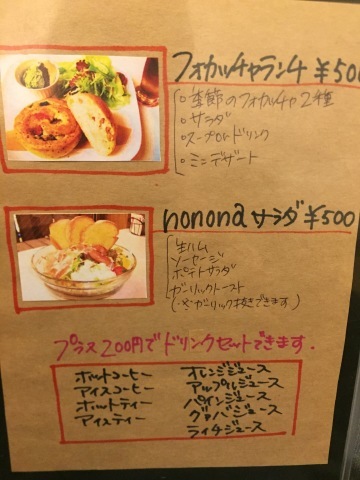 フォカッチャランチ ¥500
○季節のフォカッチャ2種
○サラダ
○スープorドリンク
○ミニデザート
nononaサラダ ¥500
生ハム
ソーセージ
ポテトサラダ
ガーリックトースト
(※ガーリック抜きできます)
プラス200円でドリンクセットできます.
ホットコーヒー
アイスコーヒー
ホットティー
アイスティー
オレンジジュース
アップルジュース
パインジュース
グァバジュース
ライチジュース